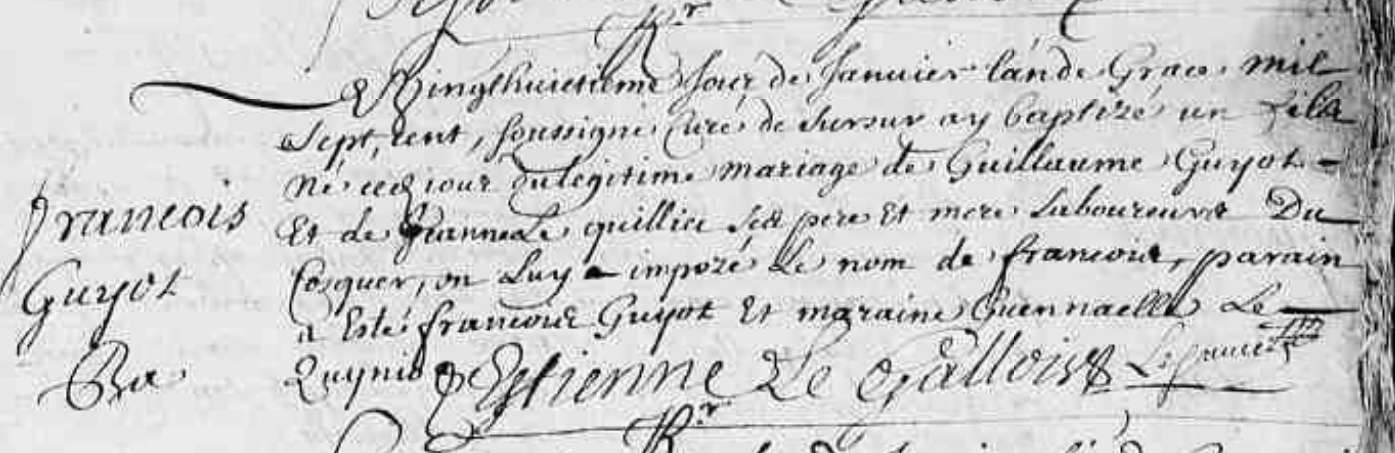 Vingthuictieme jour de Janvier lan de Grace mil
Sept, cent, soussigné Curé de Surzur ay baptizé un fils
né ced jour du legitime mariage de Guillaume Guyot
Et de Jeanne Le quillier ses pere Et mere Laboureurs Du
Cosquer, on Luy a impozé Le nom de francois, parain
a Esté francois Guyot Et maraine Guennaelle Le
francois
Guyot
Estienne Le Gallois